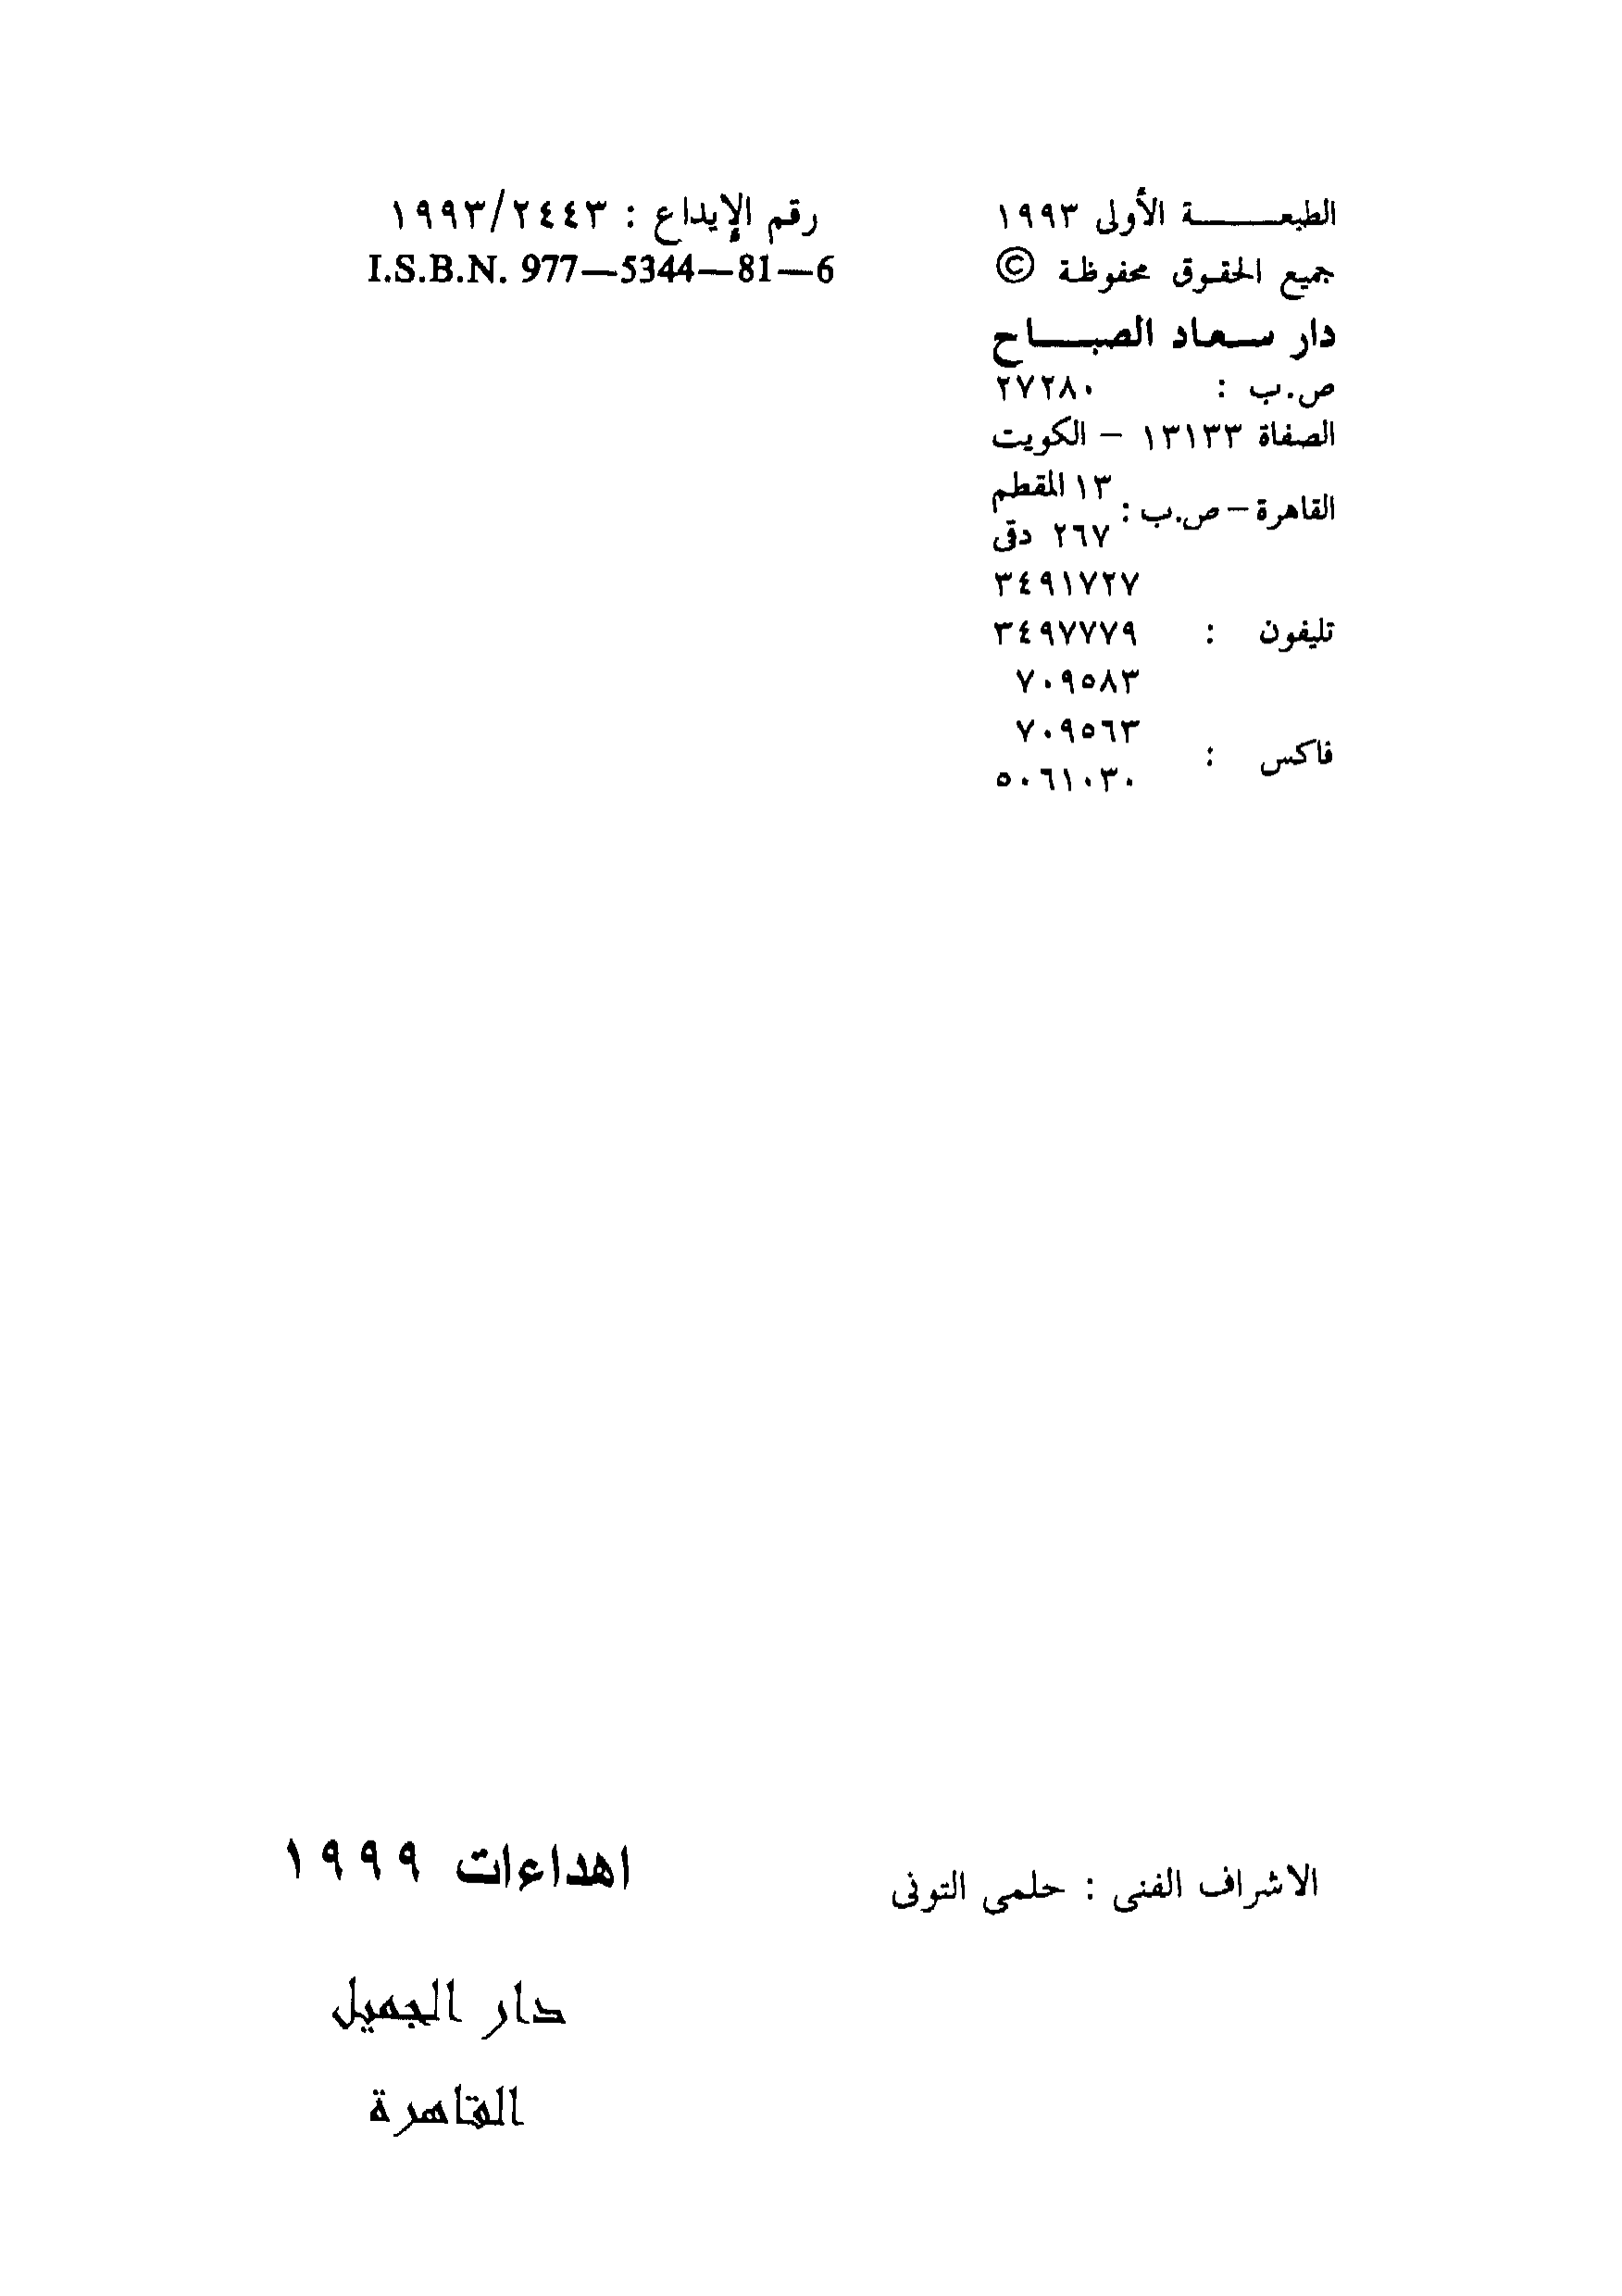 الطبعة الأولى ١٩٩٣
جميع الحقوق محفوظة ©
دار سعاد الصباح
ص.ب : ٢٧٢٨٠
الصفاة ١٣١٣٣ – الكويت
القاهرة – ص.ب : ١٣ المقطم
٢٦٧ دقى
٣٤٩١٧٢٧
تليفون : ٣٤٩٧٧٧٩
٧٠٩٥٨٣
فاكس : ٧٠٩٥٦٣
٥٠٦١٠٣٠
رقم الإيداع : ١٩٩٣/٢٤٤٣
I.S.B.N. 977—5344—81—6
الاشراف الفنى : حلمى التونى
اهداءات ١٩٩٩
دار الجميل
القاهرة